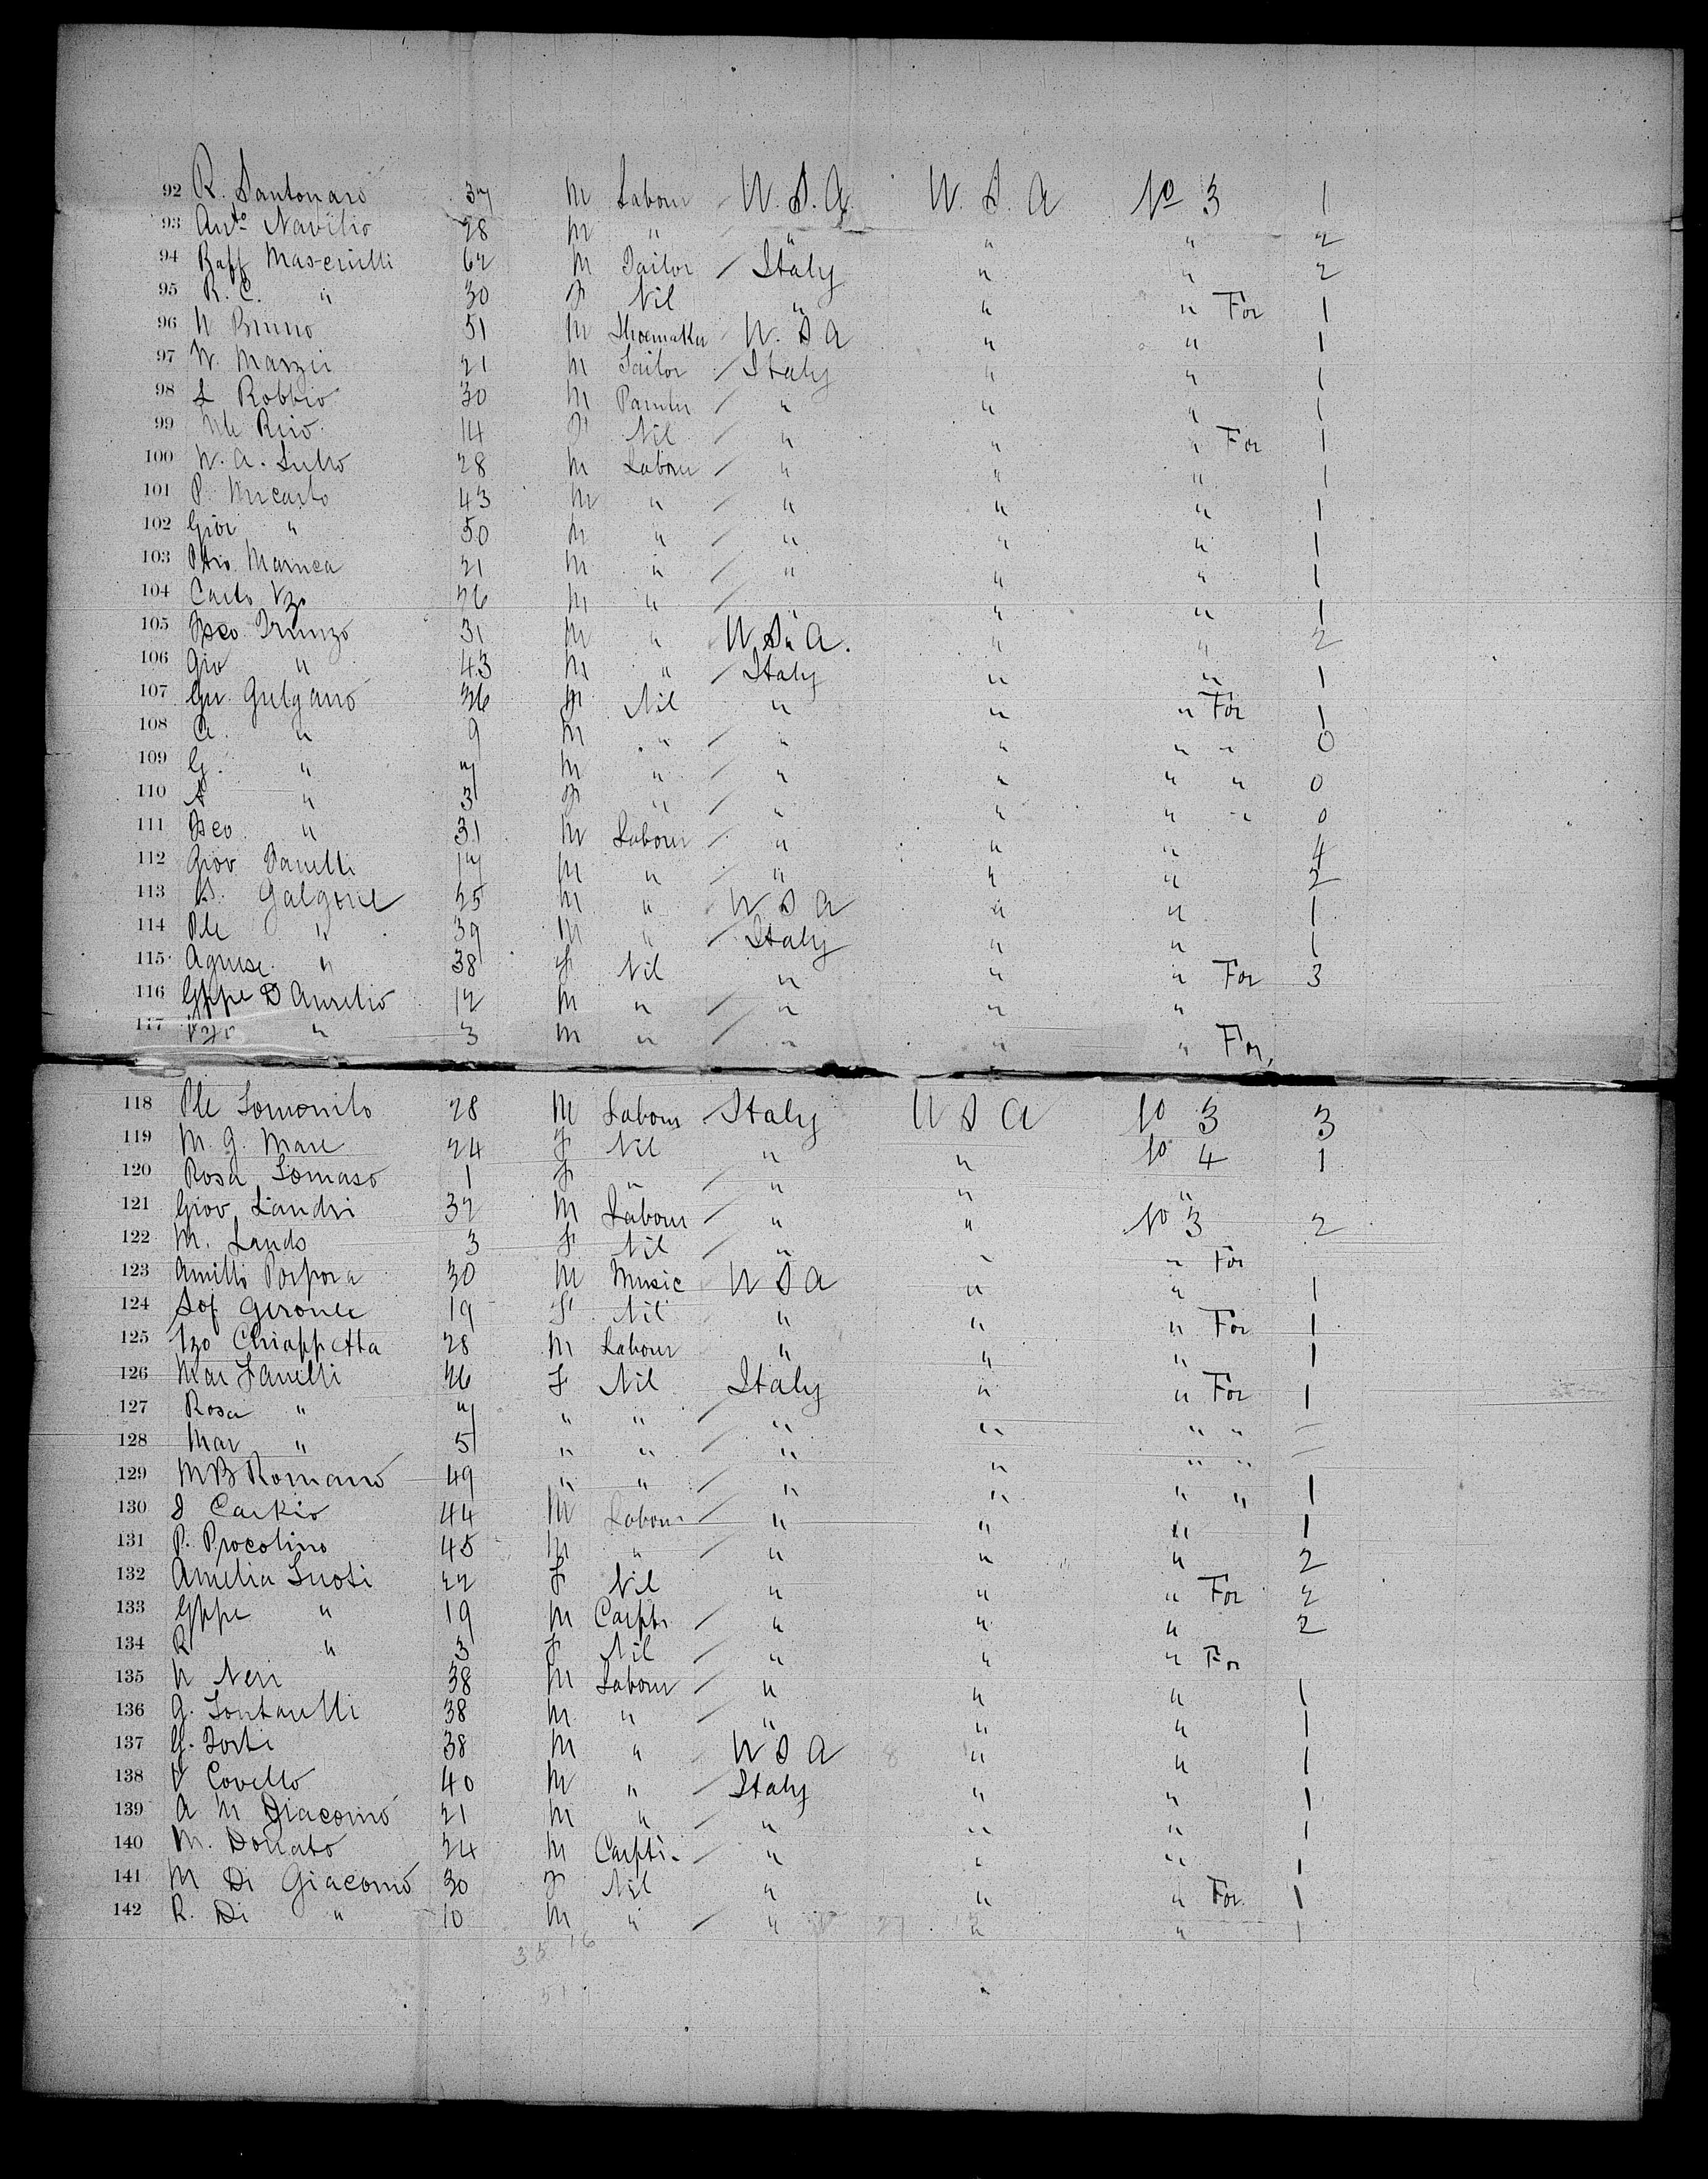 92 R. Santonaro 37 M Labour U.S.A. U.S.A No 3 1
93 Anto Navilio 28 M " " " " 2
94 Raff Mascivilli 62 M Tailor / Italy " " 2
95 R.C. " 30 F Nil " " " For 1
96 N Bruno 51 M Shoemaker U.S A " " 1
97 V. Marzii 21 M Tailor / Italy " " 1
98 L Robbio 30 M / " " " 1
99 14 F Nil / " " " For 1
100 28 M Labour / " " " 1
101 P. Micarlo 43 M " / " " " 1
102 Giov " 50 M " / " " " 1
103 Marnea 21 M " / " " " 1
104 Carlo Vzo 26 M " / " " " 1
105 Fsco Trunzo 31 M " U.S.A. " " 2
106 Gio " 43 M " / Italy " " 1
107 Gulgano 36 F Nil " " " For 1
108 C. " 9 M " / " " " " 0
109 G. " 7 M " / " " " " 0
110 A " 3 F " / " " " " 0
111 Fsco " 31 M Labour / " " " 4
112 Giov Panelli 17 M " " " " 2
113 Galgone 25 M " U S A " " 1
114 Ple " 39 M " / Italy " " 1
115 Agnese " 38 F Nil " " " For 3
116 Gppe D Aurelio 12 M " / " " "
117 Vzo " 3 M " / " " " For
118 Ple Tomonito 28 M Labour Italy U S A No 3 3
119 M. G. Mare 24 F Nil " " No 4 1
120 Rosa Tomaso 1 F " / " " "
121 Giov Landri 32 M Labour / " " No 3 2
122 M. Lando 3 F Nil / " " " For
123 Porpora 30 M Music U S A " " 1
124 Sof Geronle 19 F Nil " " " For 1
125 Vzo Chiappetta 28 M Labour " " " 1
126 Mar Fanelli 26 F Nil Italy " " For 1
127 Rosa " 7 " " / " " " " —
128 Mar " 5 " " / " " " " —
129 M B Romano 49 " " / " " " " 1
130 Carkio 44 M Labour / " " " 1
131 P. Procolino 45 M " / " " " 2
132 Amelia Suoti 22 F Nil " " " For 2
133 Gppe " 19 M Carptr / " " " 2
134 R " 3 F Nil / " " " For
135 N Neri 38 M Labour / " " " 1
136 G. Fontanelli 38 M " / " " " 1
137 G. Forte 38 M " U S A " " 1
138 V Covello 40 M " / Italy " " 1
139 A M Diacomo 21 M " / " " " 1
140 M. Donato 24 M Carptr / " " " 1
141 M Di Giacomo 30 F Nil " " " For 1
142 R. Di " 10 M " / " " " 1
35 16
51